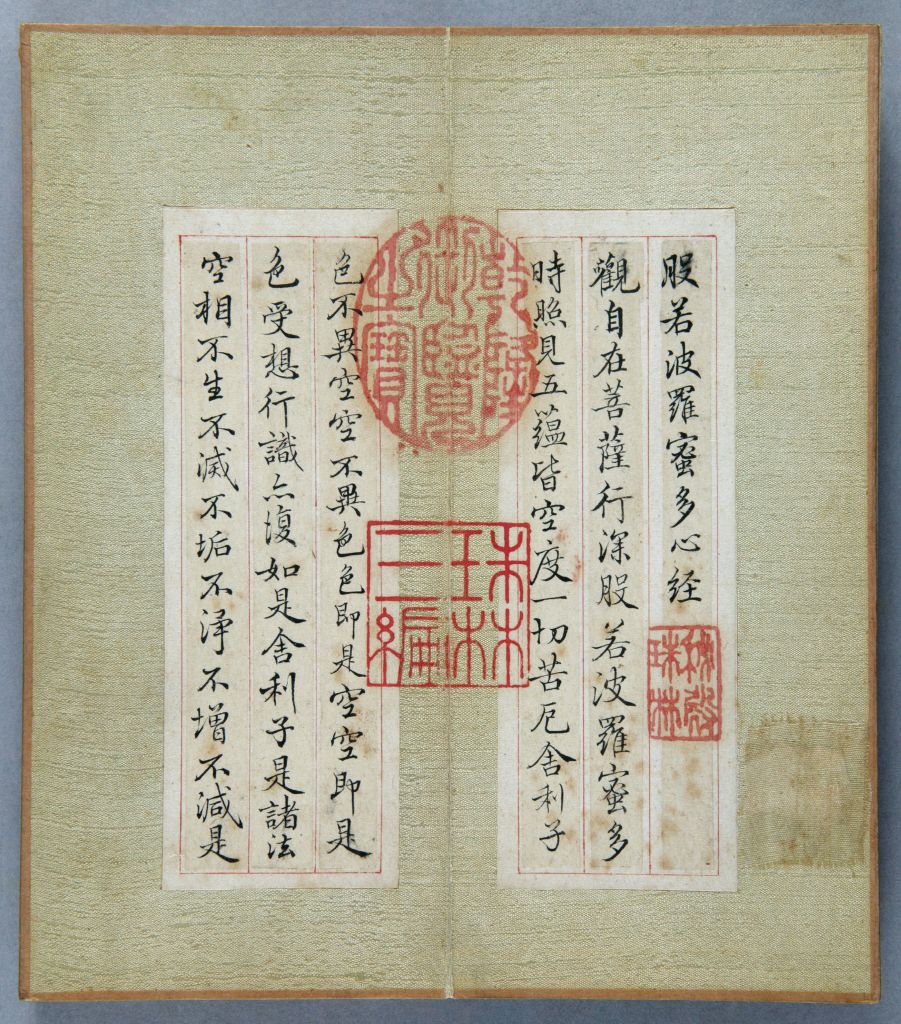 般若波羅蜜多心経
秘殿珠林
觀自在菩薩行深般若波羅蜜多
時照見五蘊皆空度一切苦厄舍利子
乾隆御覽之寶
珠林三編
色不異空空不異色色即是空空即是
色受想行識亦復如是舍利子是諸法
空相不生不滅不垢不淨不增不減是